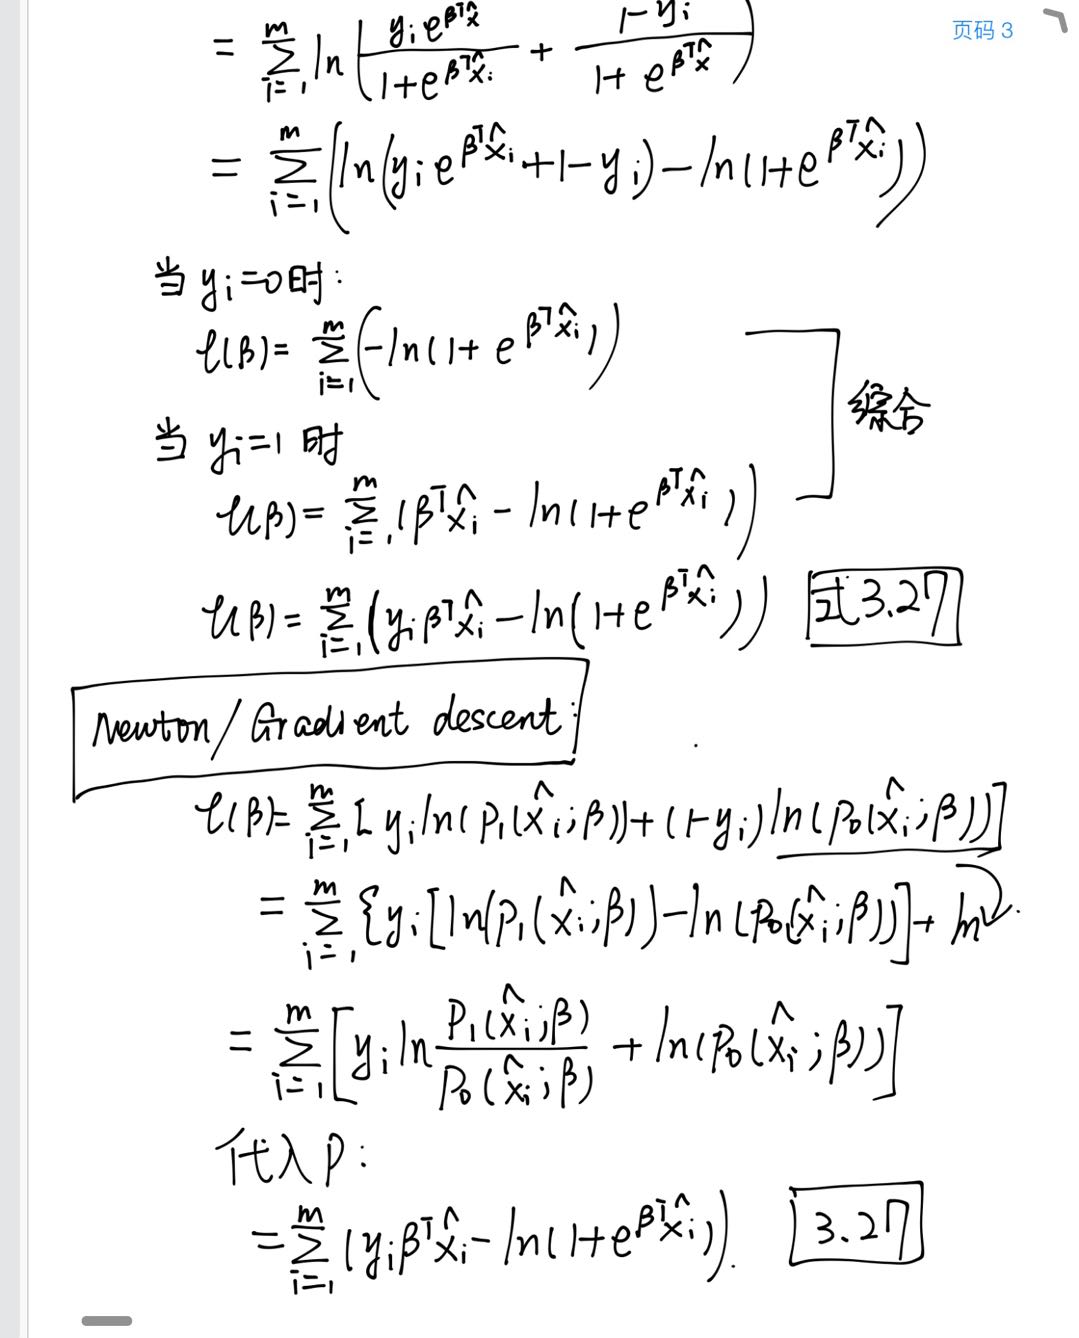 页码 3
= \sum_{i=1}^{m} ln ( \frac{y_i e^{β^T \hat{x}}}{1+e^{β^T \hat{x}_i}} + \frac{1-y_i}{1+e^{β^T \hat{x}}} )
= \sum_{i=1}^{m} ( ln(y_i e^{β^T \hat{x}_i} + 1 - y_i) - ln(1+e^{β^T \hat{x}_i}) )
当 y_i=0时:
ℓ(β)= \sum_{i=1}^{m} ( -ln(1+ e^{β^T \hat{x}_i}) )
综合
当 y_i=1 时
ℓ(β)= \sum_{i=1}^{m} (β^T \hat{x}_i - ln(1+e^{β^T \hat{x}_i}))
ℓ(β)= \sum_{i=1}^{m} (y_i β^T \hat{x}_i - ln(1+e^{β^T \hat{x}_i})) 式3.27
Newton/Gradient descent:
ℓ(β)= \sum_{i=1}^{m} [ y_i ln(p_1(\hat{x}_i;β))+(1-y_i)ln(p_0(\hat{x}_i;β))]
= \sum_{i=1}^{m} {y_i [ln(p_1(\hat{x}_i;β))-ln(p_0(\hat{x}_i;β))]+ ln
= \sum_{i=1}^{m} [ y_i ln \frac{p_1(\hat{x}_i;β)}{p_0(\hat{x}_i;β)} + ln(p_0(\hat{x}_i;β))]
代入p:
= \sum_{i=1}^{m} (y_i β^T \hat{x}_i - ln(1+e^{β^T \hat{x}_i})). 3.27